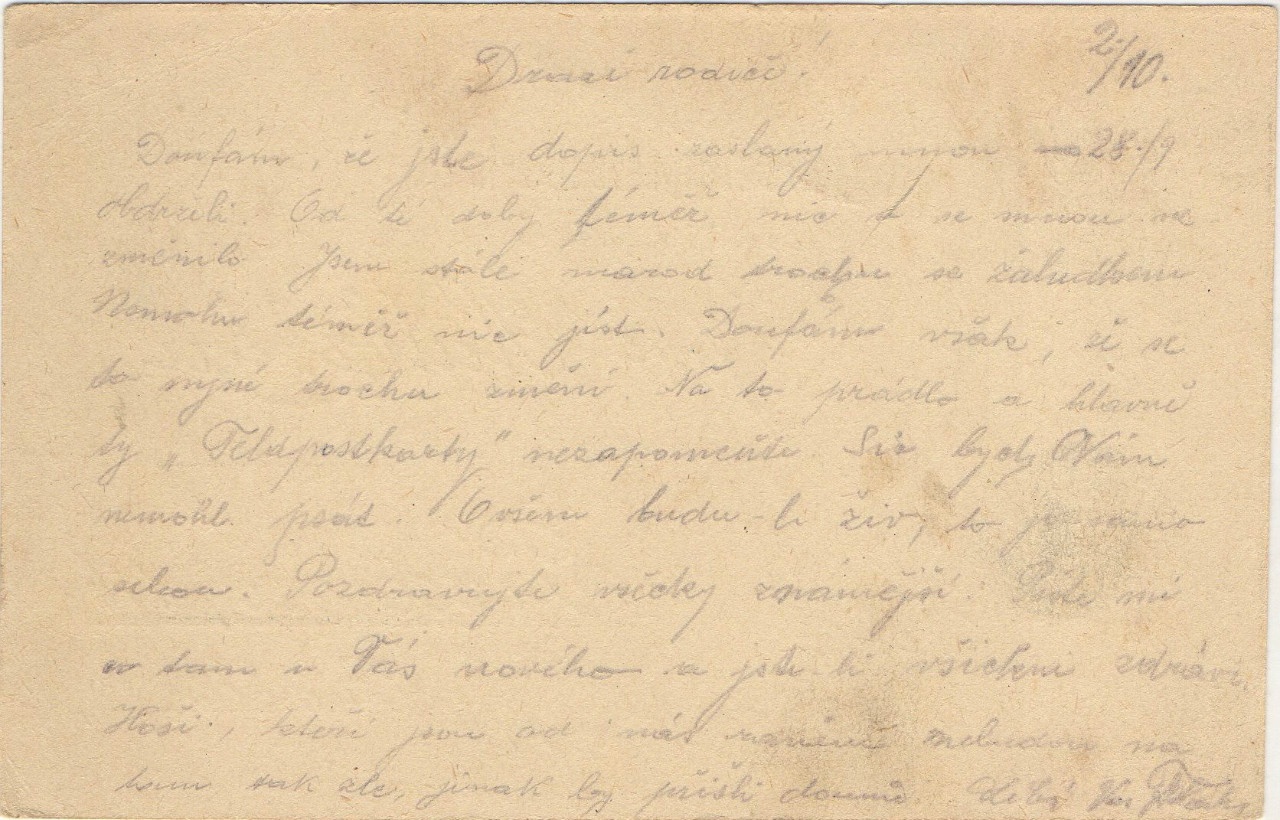 2./10.
Drazí rodiče!
Doufám, že jste dopis zaslaný mnou 28./9
obdrželi. Od té doby téměř nic se mnou ne-
změnilo. Jsem stále marod trochu se žaludkem
Nemohu téměř nic jíst. Doufám však, že se
to nyní trochu změní. Na to prádlo a hlavně
ty „Feldpostkarty" nezapomeňte. Sic bych Vám
nemohl psát. Ovšem budu-li živ, to je samo
sebou. Pozdravujte všecky známější. Pište mi
co tam u Vás nového a jste li všichni zdrávi.
Hoši, kteří jsou od nás raněni nebudou na
tom tak zle, jinak by přišli domů. Líbá Vás